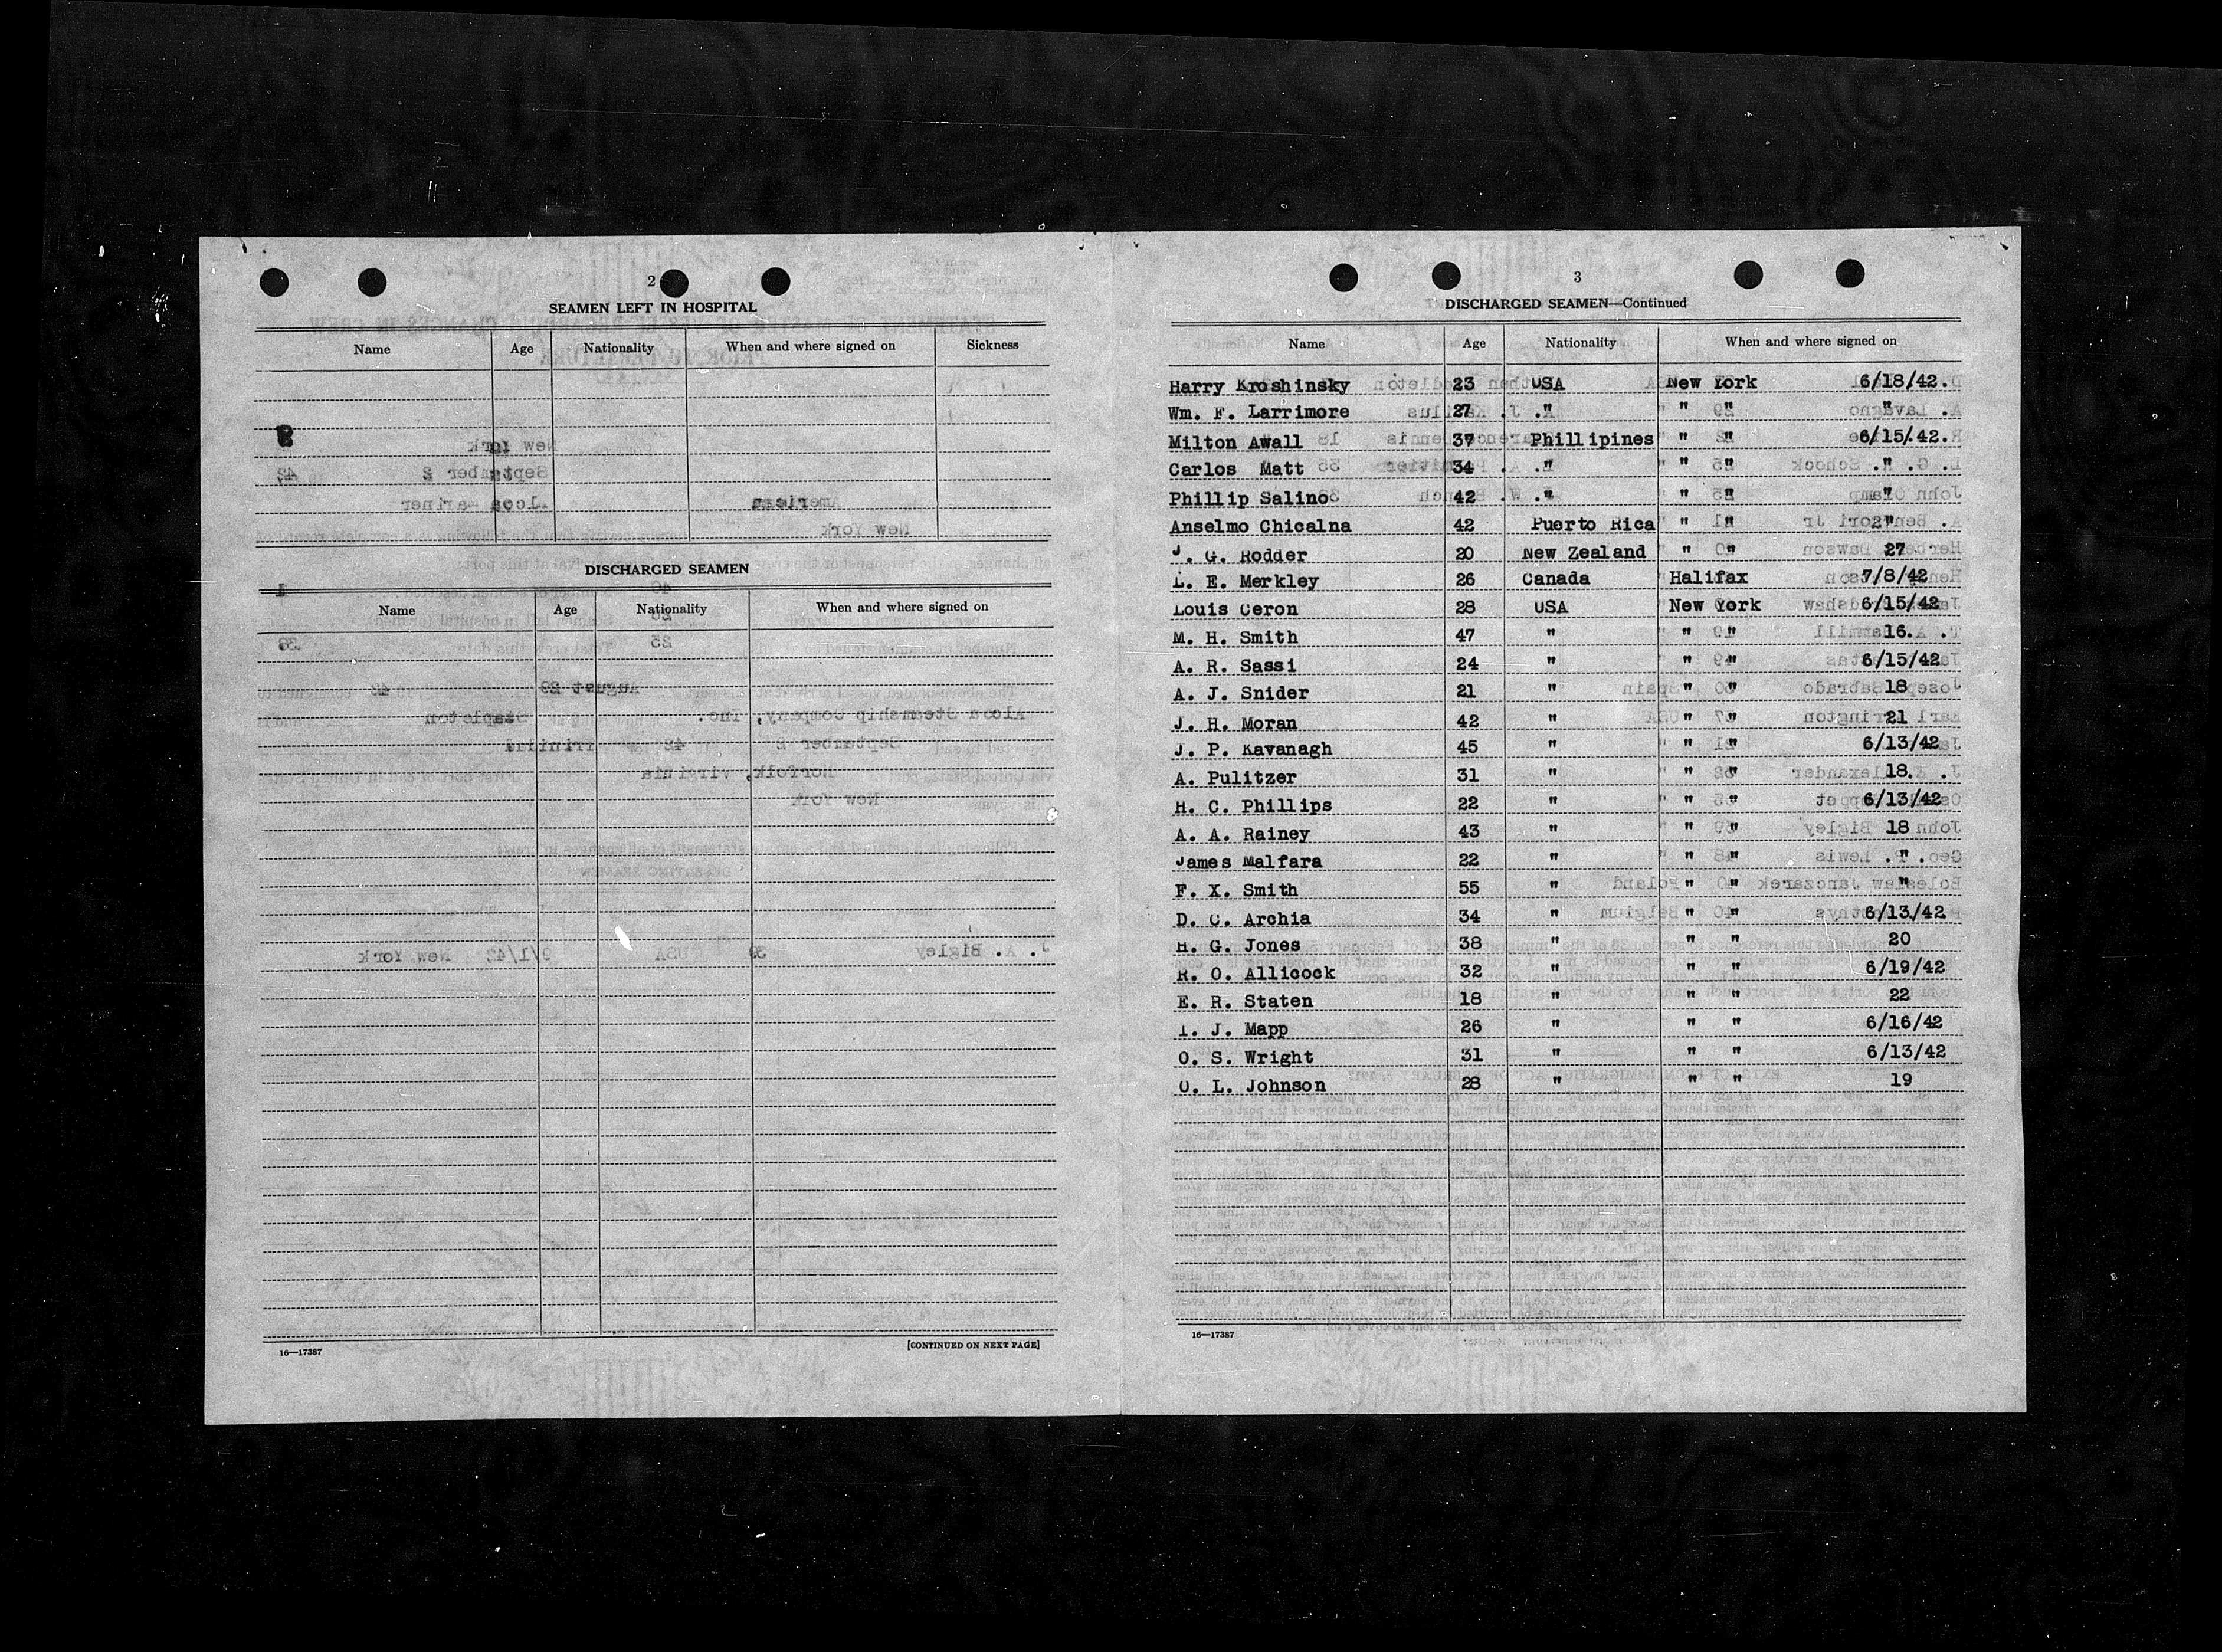 2
SEAMEN LEFT IN HOSPITAL
Name Age Nationality When and where signed on Sickness
DISCHARGED SEAMEN
Name Age Nationality When and where signed on
16—17387 [CONTINUED ON NEXT PAGE]
3
DISCHARGED SEAMEN—Continued
Name Age Nationality When and where signed on
Harry Kroshinsky 23 USA New York 6/18/42.
Wm. F. Larrimore 27 " " " "
Milton Awall 37 Phillipines " " 6/15/42.
Carlos Matt 34 " " " "
Phillip Salino 42 " " " "
Anselmo Chicalna 42 Puerto Rica " " "
J. G. Rodder 20 New Zealand " " 27
L. E. Merkley 26 Canada Halifax 7/8/42
Louis Ceron 28 USA New York 6/15/42
M. H. Smith 47 " " " 16.
A. R. Sassi 24 " " " 6/15/42
A. J. Snider 21 " " " 18
J. H. Moran 42 " " " 21
J. P. Kavanagh 45 " " " 6/13/42
A. Pulitzer 31 " " " 18.
H. C. Phillips 22 " " " 6/13/42
A. A. Rainey 43 " " " 18
James Malfara 22 " " " "
F. X. Smith 55 " " " "
D. C. Archia 34 " " " 6/13/42
H. G. Jones 38 " " " 20
R. O. Allicock 32 " " " 6/19/42
E. R. Staten 18 " " " 22
I. J. Mapp 26 " " " 6/16/42
O. S. Wright 31 " " " 6/13/42
O. L. Johnson 28 " " " 19
16—17387